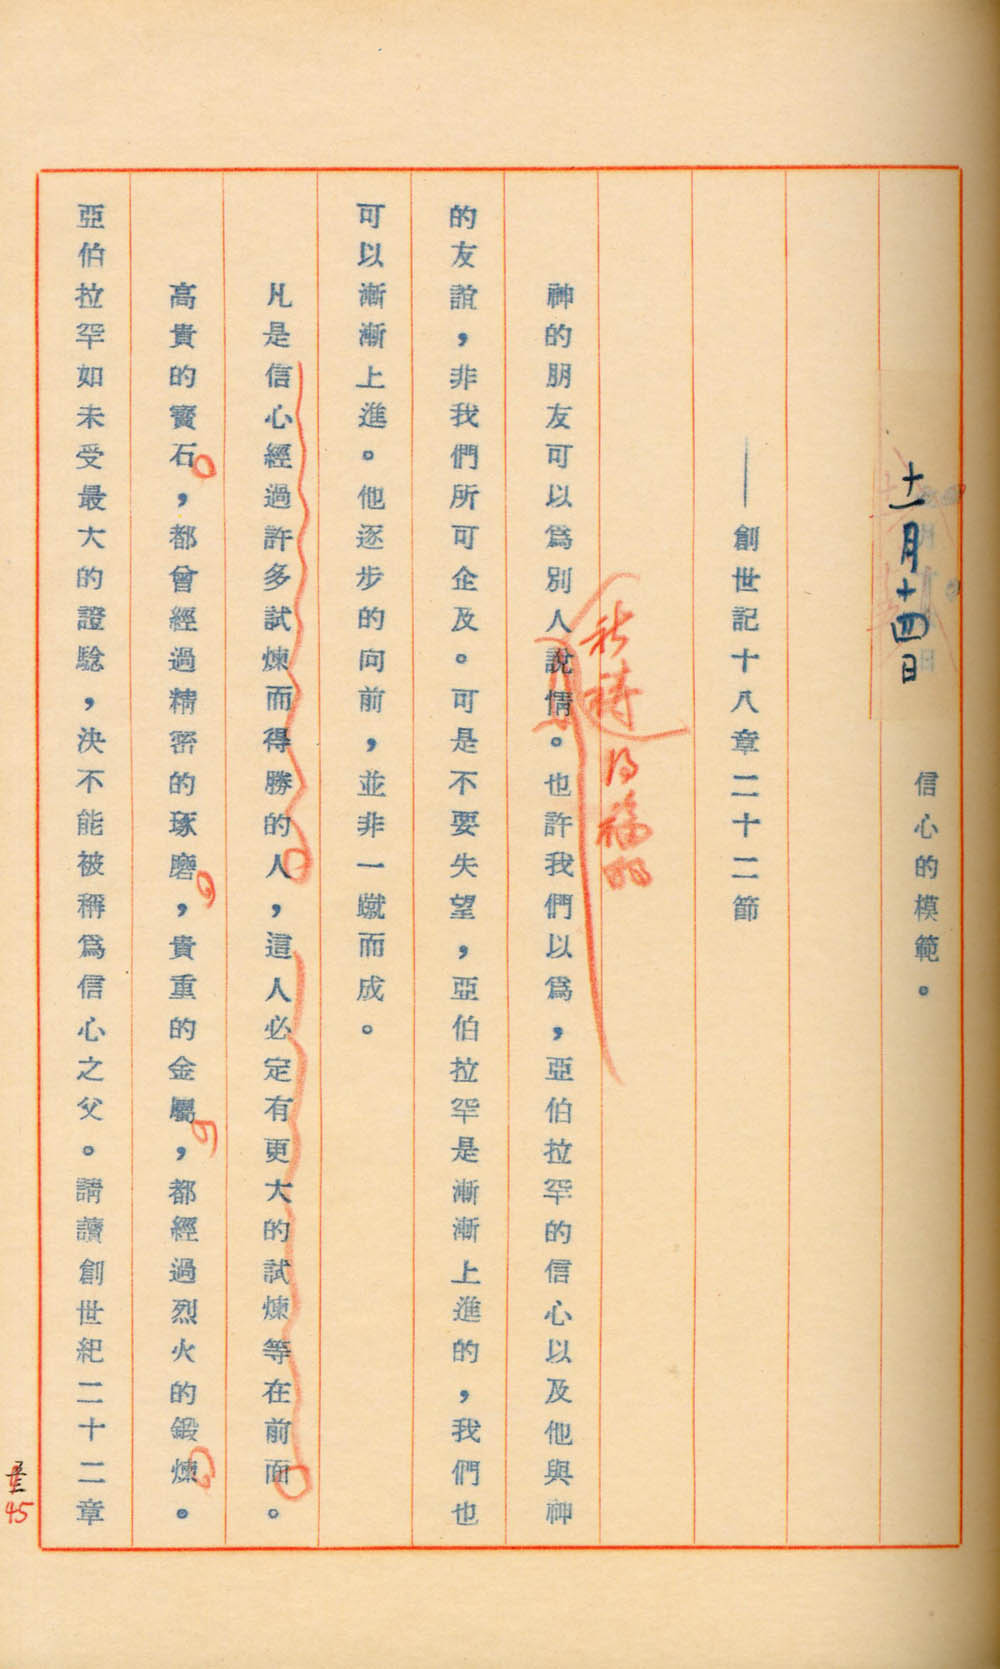 信心的模範。
十一月十四日
——創世記十八章二十二節
神的朋友可以爲別人說情。也許我們以爲,亞伯拉罕的信心以及他與神
祈禱得福
的友誼,非我們所可企及。可是不要失望,亞伯拉罕是漸漸上進的,我們也
可以漸漸上進。他逐步的向前,並非一蹴而成。
凡是信心經過許多試煉而得勝的人,這人必定有更大的試煉等在前面。
高貴的寳石,都曾經過精密的琢磨,貴重的金屬,都經過烈火的鍛煉。
亞伯拉罕如未受最大的證驗,決不能被稱爲信心之父。請讀創世紀二十二章
45